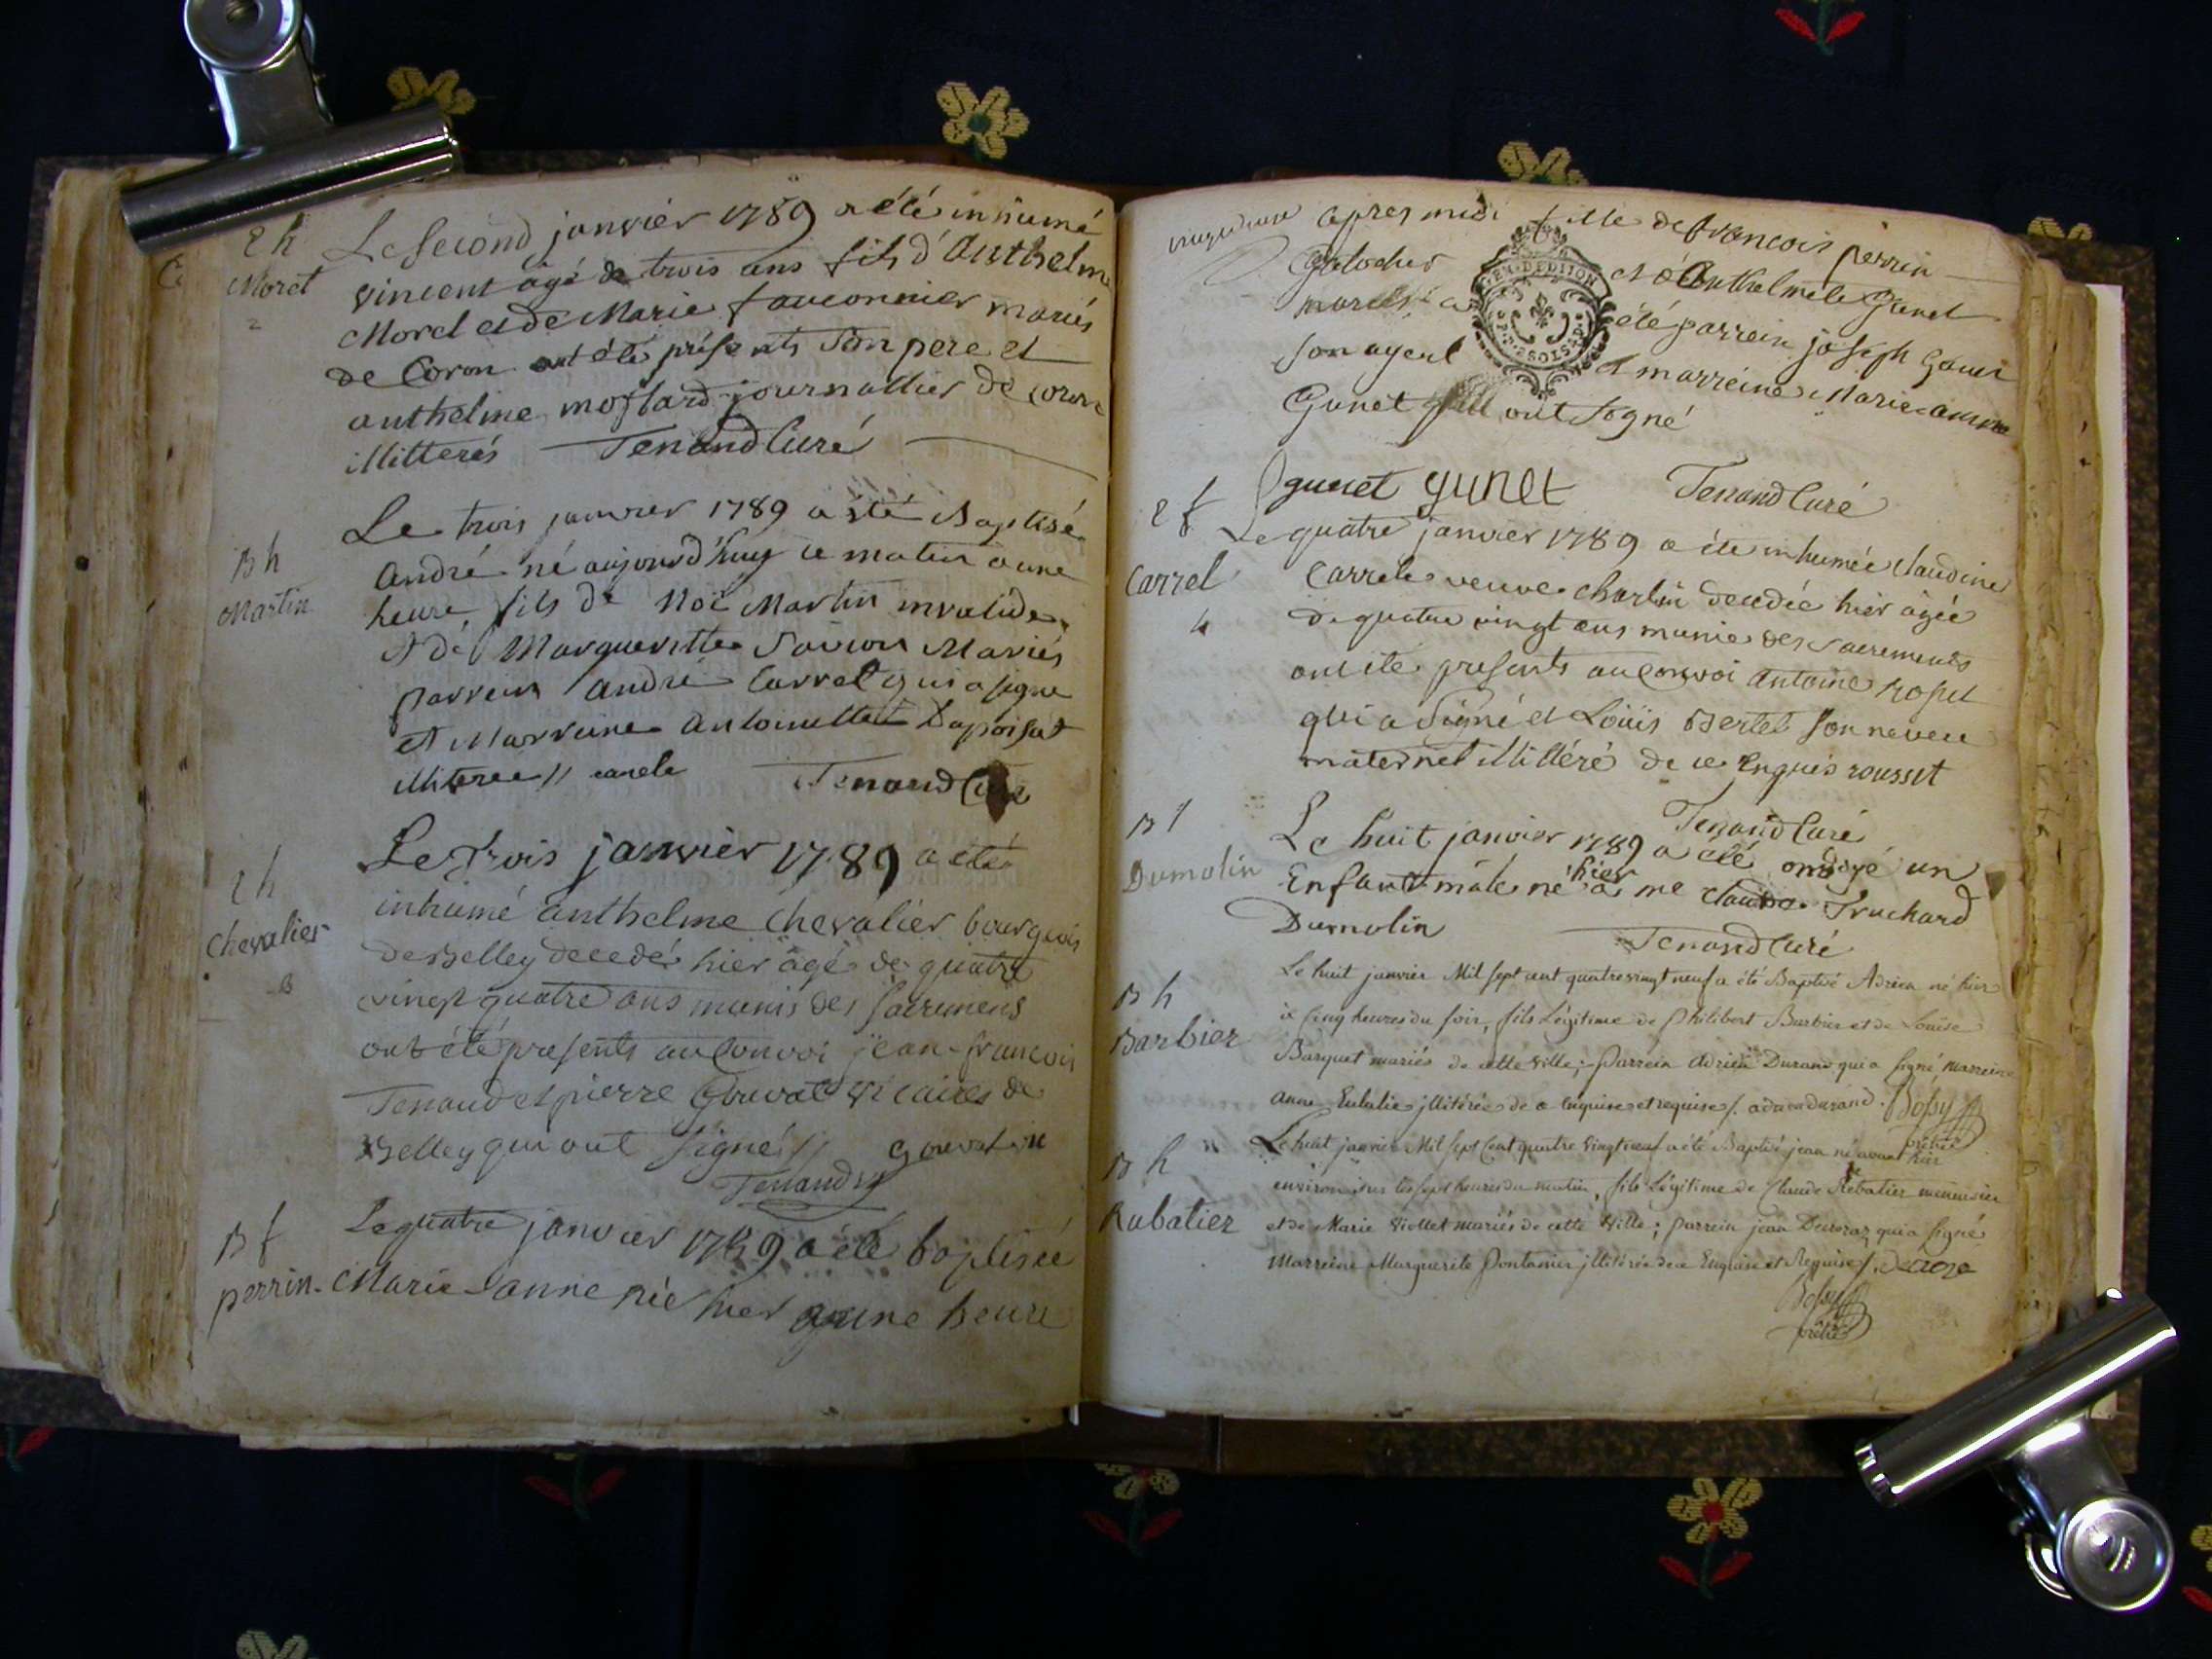 2 h
Morel
2
Le second janvier 1789 a été inhumé
vincent agé de trois ans fils d'Anthelme
Morel et de Marie fauconnier mariés
de Coron ont été présents son pere et
anthelme mostard journallier de coron
illitterés Tenand Curé
B h
Martin
Le trois janvier 1789 a été Baptisé
André né aujourd'huy ce matin a une
heure, fils de Noë Martin invalide
et de Margueritte Mariés
parrein André Carrel qui a signe
et Marreine Antoinette Dapoisat
illiteree // carrele Tenand Curé
2 h
Chevalier
Le trois janvier 1789 a été
inhumé anthelme Chevalier bourgeois
de Belley decedé hier âgé de quatre
vingt quatre ans munis des sacremens
ont été presents au Convoi jean-francois
Tenaud et pierre vicaires de
Belley qui ont signé //
Tenaud
B f
perrin
Le quatre janvier 1789 a été baptisée
Marie anne née hier a une heure
apres midi fille de francois perrin
et d'Anthelmete Gunet
mariés a été parrein joseph Gunet
son ayeul et marreine Marie anne
Gunet ont signé
gunet gunet Tenand Curé
2 f
Carrel
4
Le quatre janvier 1789 a été inhumée claudine
Carrel veuve charlin decedée hier âgée
de quatre vingt ans munie des sacrements
ont été presents au Convoi Antoine rosset
qui a signé et Loüis Bertet son neveu
maternel illitéré de ce Enquis rousset
Tenand Curé
B f
Dumolin
Le huit janvier 1789 a été ondoyé un
Enfant mâle né hier a me claude Truchard
Dumolin Tenand Curé
B h
Barbier
Le huit janvier Mil sept cent quatre vingt neuf a été Baptisé Adrien né hier
à cinq heures du soir, fils Légitime de Philibert Barbier et de Louise
Barquet mariés de cette ville; parrein Adrien Durand qui a signé, marreine
anne Eulalie illitérée de ce enquise et requise /. durand. Bossy
prêtre
B h
Rubatier
Le huit janvier Mil sept Cent quatre vingt neuf a été Baptisé jean né avant hier
environ les sept heures du matin, fils Légitime de Claude Rebatier
et de Marie Viollet mariés de cette Ville; parrein jean Deroraz qui a signé
Marreine Marguerite Pontanier illitérée de ce Enquise et Requise /.
Bossy
prêtre